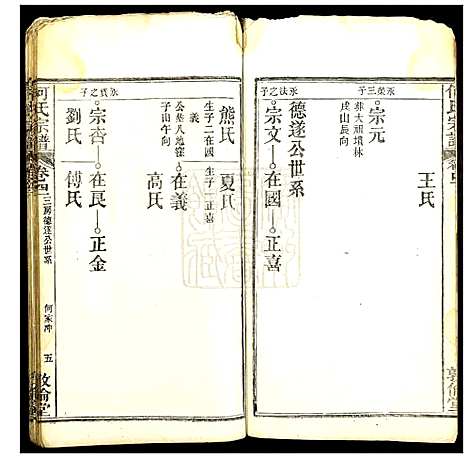 何氏宗譜
王氏
永榮三子
宗元
葬大頑墳林
戌山辰向
德遂公世系
永法之子
宗文
在國
正喜
熊氏
夏氏
生子二在國
在義
生子一正喜
公葬八地窪
子山午向
高氏
永貢之子
宗杏
在良
正金
劉氏
傅氏
何氏宗譜
卷四
三房德遂公世系
何家冲
五
敦倫堂